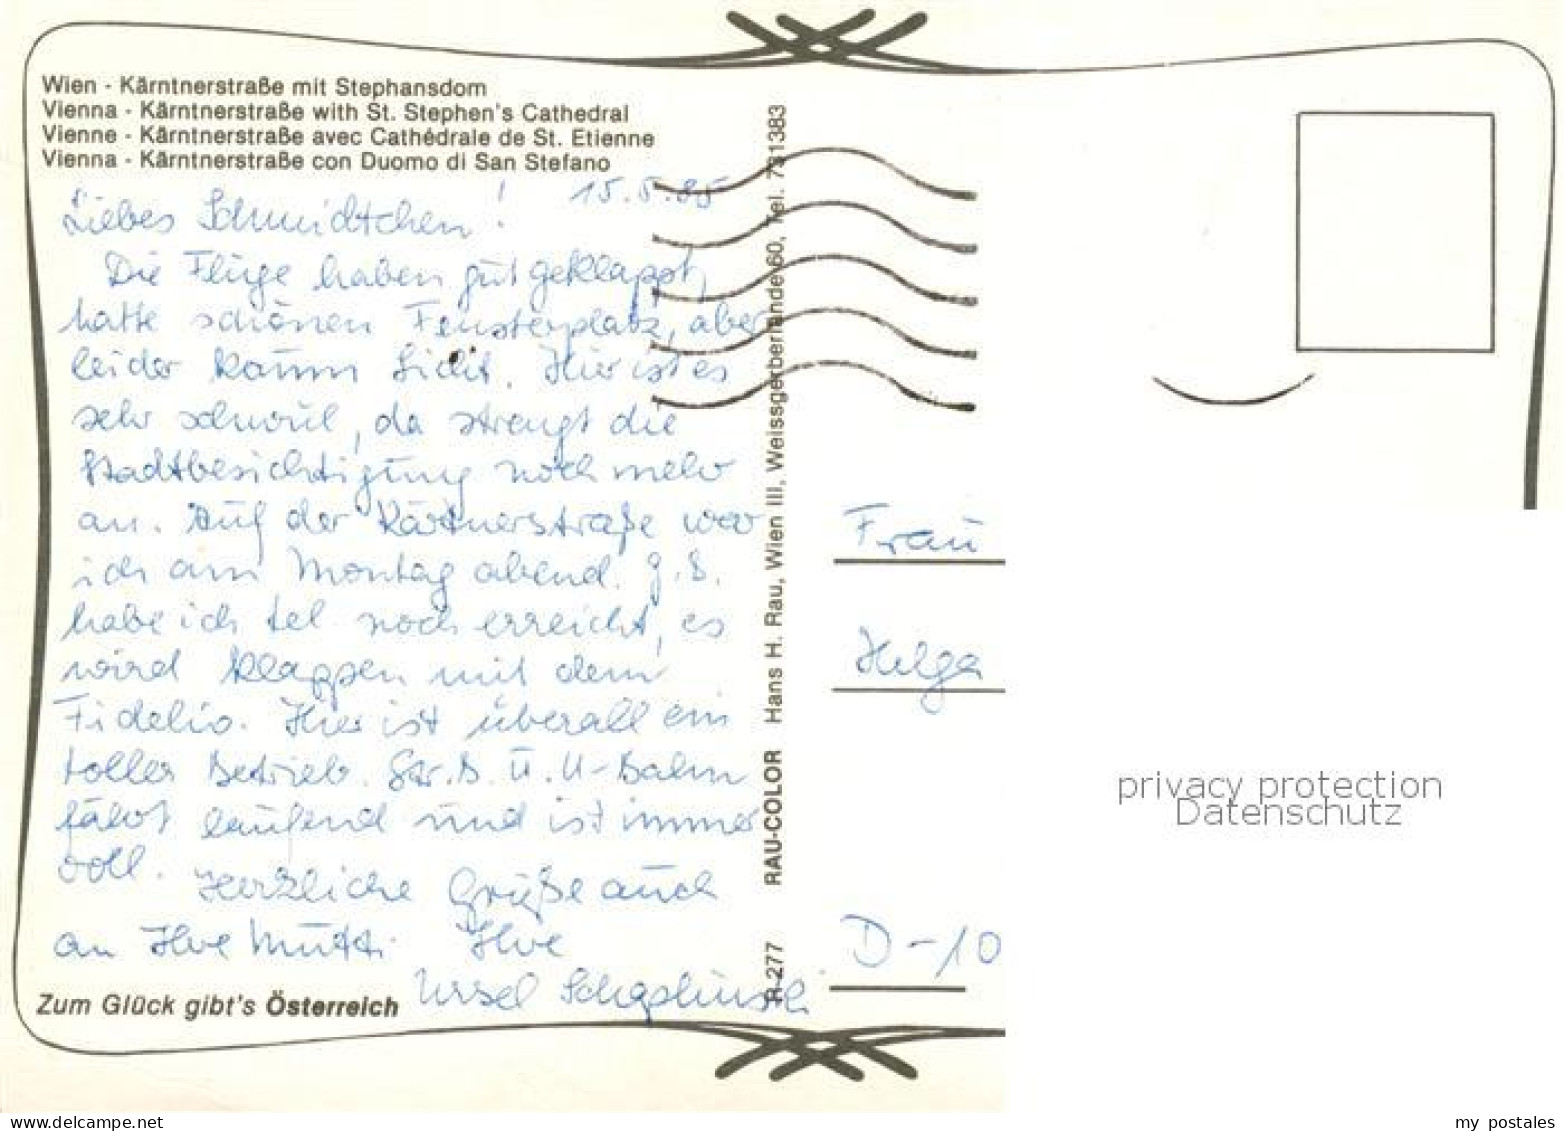 Wien - Kärntnerstraße mit Stephansdom
Vienna - Kärntnerstraße with St. Stephen's Cathedral
Vienne - Kärntnerstraße avec Cathédrale de St. Etienne
Vienna - Kärntnerstraße con Duomo di San Stefano
15.5.85
Liebes Schmidtchen!
Die Flüge haben gut geklappt,
hatte schönen Fensterplatz, aber
leider kaum Sicht. Hier ist es
sehr schwül, da strengt die
Stadtbesichtigung noch mehr
an. Auf der Kärtnerstraße war
ich am Montag abend. G.S.
habe ich tel. noch erreicht, es
wird klappen mit dem
Fidelio. Hier ist überall ein
toller Betrieb. Str.B. u. U-Bahn
fährt laufend und ist immer
voll. Herzliche Grüße auch
an Ihre Mutti Ihre
Ursel
Zum Glück gibt's Österreich
R-277 RAU-COLOR Hans H. Rau, Wien III, Weissgerberlände 60, Tel. 731383
Frau
Helga
D-10
privacy protection
Datenschutz
www.delcampe.net
my_postales